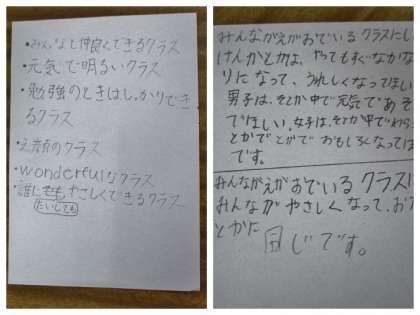 ・みんなと仲良くできるクラス
・元気で明るいクラス
・勉強のときはしっかりでき
るクラス
・笑顔のクラス
・wonderfulなクラス
・誰にもやさしくできるクラス
たいしても
みんながえがおでいるクラスにし
けんかとかは、やってもすぐなかなお
りになって、うれしくなってほしい
男子は、そとか中で元気であそ
でほしい。女子は、そとか中でわら
とかで おもしろくなってほ
です。
みんながえがおでいるクラスに
みんながやさしくなって、お
とかに
同じです。